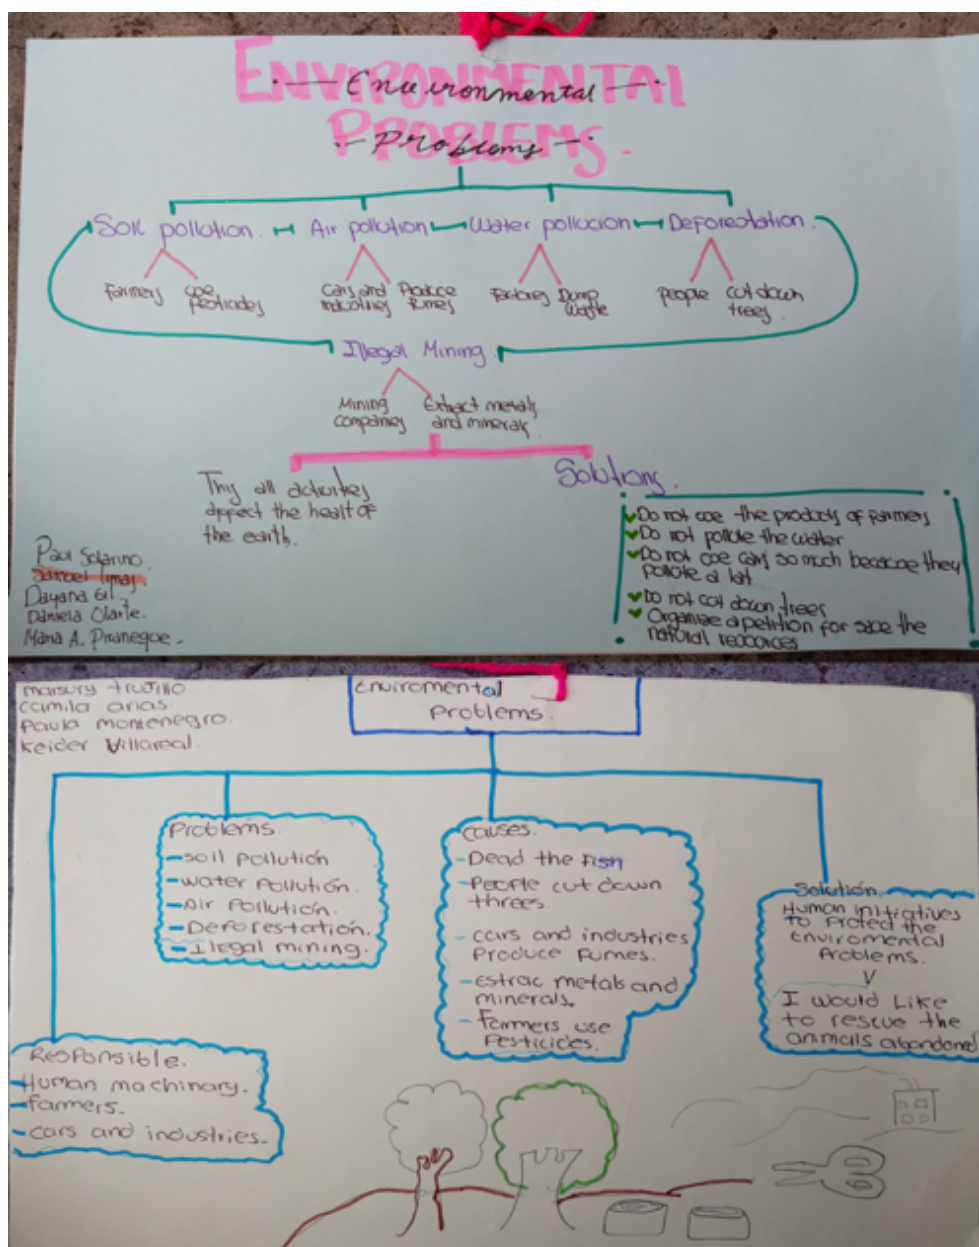 ENVIRONMENTAL
Environmental
PROBLEMS.
Problems
Soil pollution. Air pollution Water pollucion Deforestation.
Farmers Use pesticides Cars and industries Produce fumes Factories Dump waste People cut down trees.
Illegal Mining.
Mining companies Extract metals and minerals
This all activities
affect the healt of
the earth.
Solutions.
Do not use the products of farmers
Do not pollute the water
Do not use cars so much because they
pollute a lot
Do not cut down trees
Organize a petition for save the
natural resources
Paul Solarino.
Samuel Limas
Dayana Gil.
Daniela Olarte.
Maria A. Piraneque.
marsury trujillo
camila arias.
paula montenegro.
keider Villareal.
Enviromental
Problems.
Problems.
-soil pollution
-water pollution.
-Air pollution.
-Deforestation.
-Ilegal mining.
causes.
-Dead the Fish
-People cut down
threes.
- cars and industries
Produce Fumes.
-estrac metals and
minerals.
- Farmers use
Pesticides.
Solution.
Human initiatives
to Protect the
Enviromental
Problems.
I would Like
to rescue the
animals abandoned
Responsible.
-Human machinary.
-farmers.
- cars and industries.